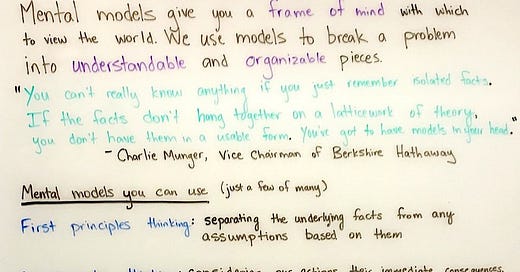 Mental models give you a frame of mind with which
to view the world. We use models to break a problem
into understandable and organizable pieces.
"You can't really know anything if you just remember isolated facts.
If the facts don't hang together on a latticework of theory,
you don't have them in a usable form. You've got to have models in your head."
- Charlie Munger, Vice Chairman of Berkshire Hathaway
Mental models you can use (just a few of many)
First principles thinking: separating the underlying facts from any
assumptions based on them
considering our actions, their immediate consequences,